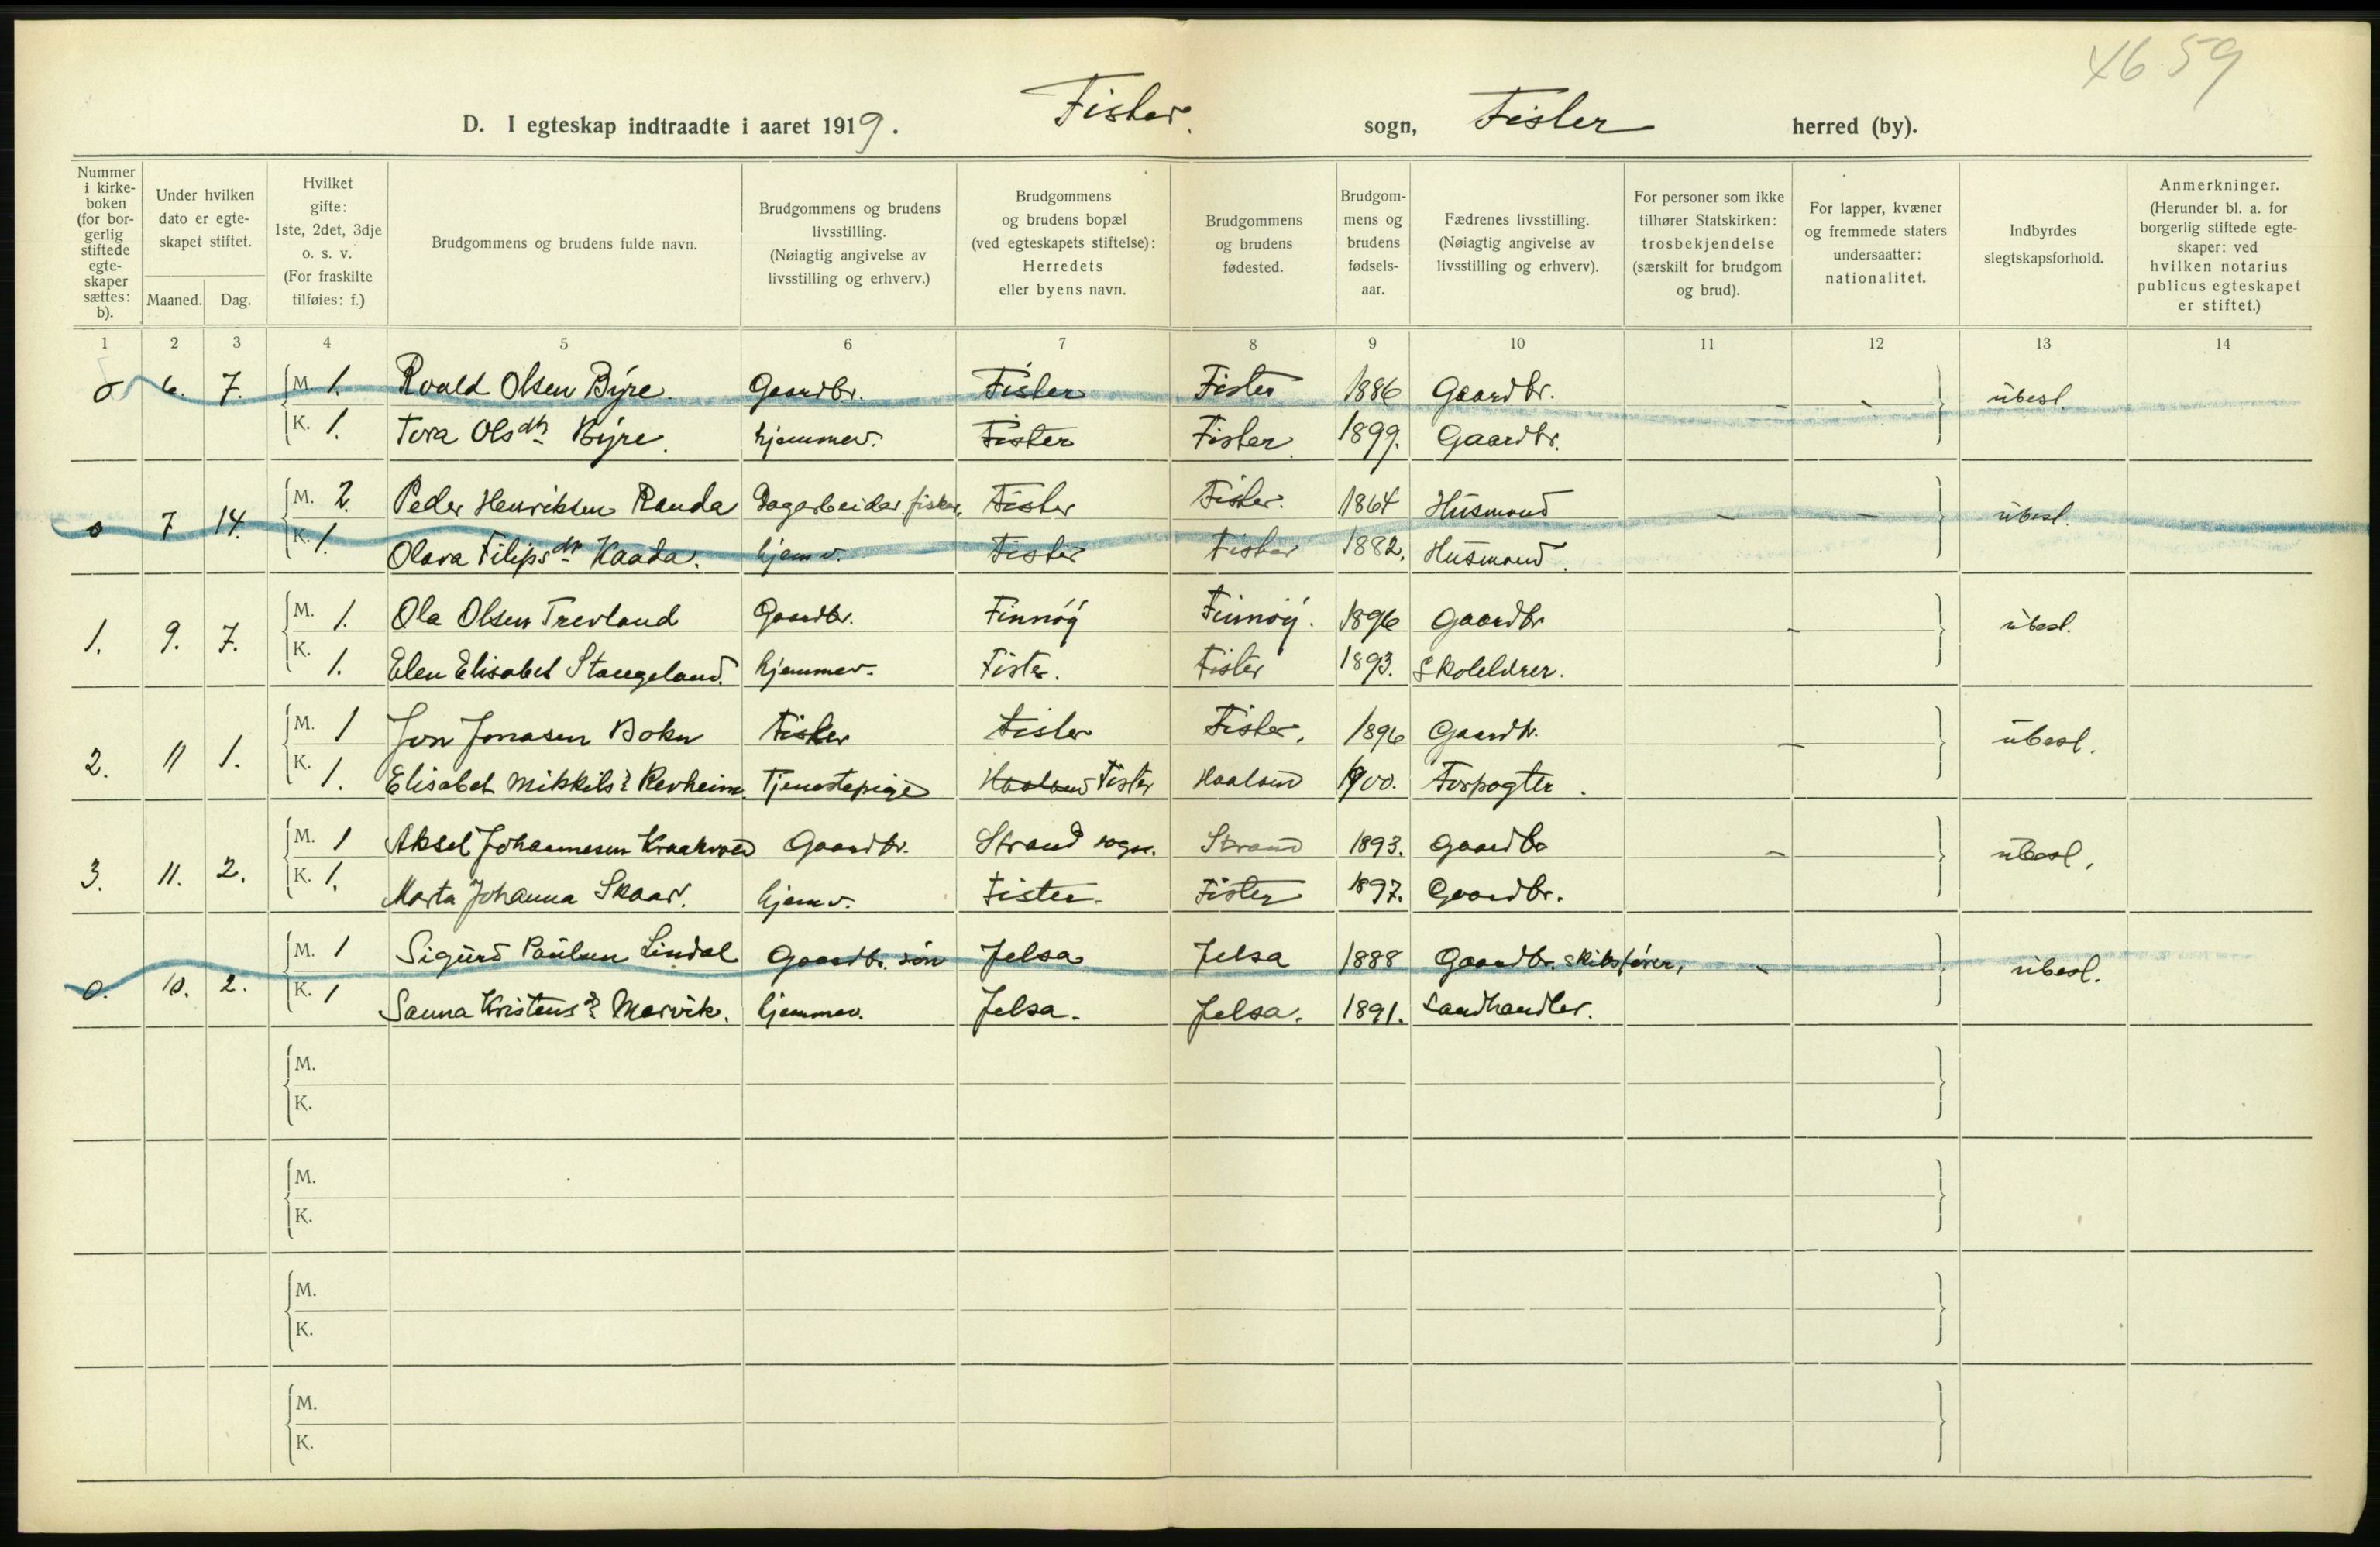 4659
D. I egteskap indtraadte i aaret 1919. Fister. sogn, Fister herred (by).
Nummer i kirke-boken (for bor-gerlig stiftede egte-skaper sættes: b).
Under hvilken dato er egte-skapet stiftet.
Maaned. Dag.
Hvilket gifte: 1ste, 2det, 3dje o. s. v. (For fraskilte tilføies: f.)
Brudgommens og brudens fulde navn.
Brudgommens og brudens livsstilling. (Nøiagtig angivelse av livsstilling og erhverv.)
Brudgommens og brudens bopæl (ved egteskapets stiftelse): Herredets eller byens navn.
Brudgommens og brudens fødested.
Brudgom-mens og brudens fødsels-aar.
Fædrenes livsstilling. (Nøiagtig angivelse av livsstilling og erhverv).
For personer som ikke tilhører Statskirken: trosbekjendelse (særskilt for brudgom og brud).
For lapper, kvæner og fremmede staters undersaatter: nationalitet.
Indbyrdes slegtskapsforhold.
Anmerkninger. (Herunder bl. a. for borgerlig stiftede egte-skaper: ved hvilken notarius publicus egteskapet er stiftet.)
1 2 3 4 5 6 7 8 9 10 11 12 13 14
0 6. 7. M. 1. Roald Olsen Byre. Gaardbr. Fister Fister 1886 Gaardbr. - - ubesl.
K. 1. Tora Olsdtr Byre. hjemmev. Fister Fister. 1899. Gaardbr.
0 7 14. M. 2. Peder Henriksen Randa Dagarbeider, fisker. Fister Fister. 1864 Husmand - - ubesl.
K. 1. Olava Filipsdtr Kaada. hjemv. Fister Fister 1882. Husmand.
1. 9. 7. M. 1. Ola Olsen Trevland Gaardbr. Finnöy Finnöy. 1896 Gaardbr - ubesl.
K. 1. Elen Elisabet Stangeland. hjemmev. Fister. Fister 1893. Skolelærer.
2. 11 1. M. 1 Jon Jonasen Bokn Fisker Fister Fister. 1896 Gaardbr. - ubesl.
K. 1. Elisabet Mikkelsd Revheim. Tjenestepige Haaland Fister Haaland 1900. Forpagter.
3. 11. 2. M. 1 Aksel Johannesen Gaardbr. Strand sogn. Strand 1893. Gaardbr - ubesl.
K. 1. Marta Johanna Skaar. hjemv. Fister. Fister 1897. Gaardbr.
0. 10. 2. M. 1 Sigurd Paulsen Lindal Gaardbr. sön Jelsa Jelsa 1888 Gaardbr. skibsförer, - ubesl.
K. 1 Sanna Kristensd Marvik. hjemmev. Jelsa. Jelsa. 1891. Landhandler.
M.
K.
M.
K.
M.
K.
M.
K.